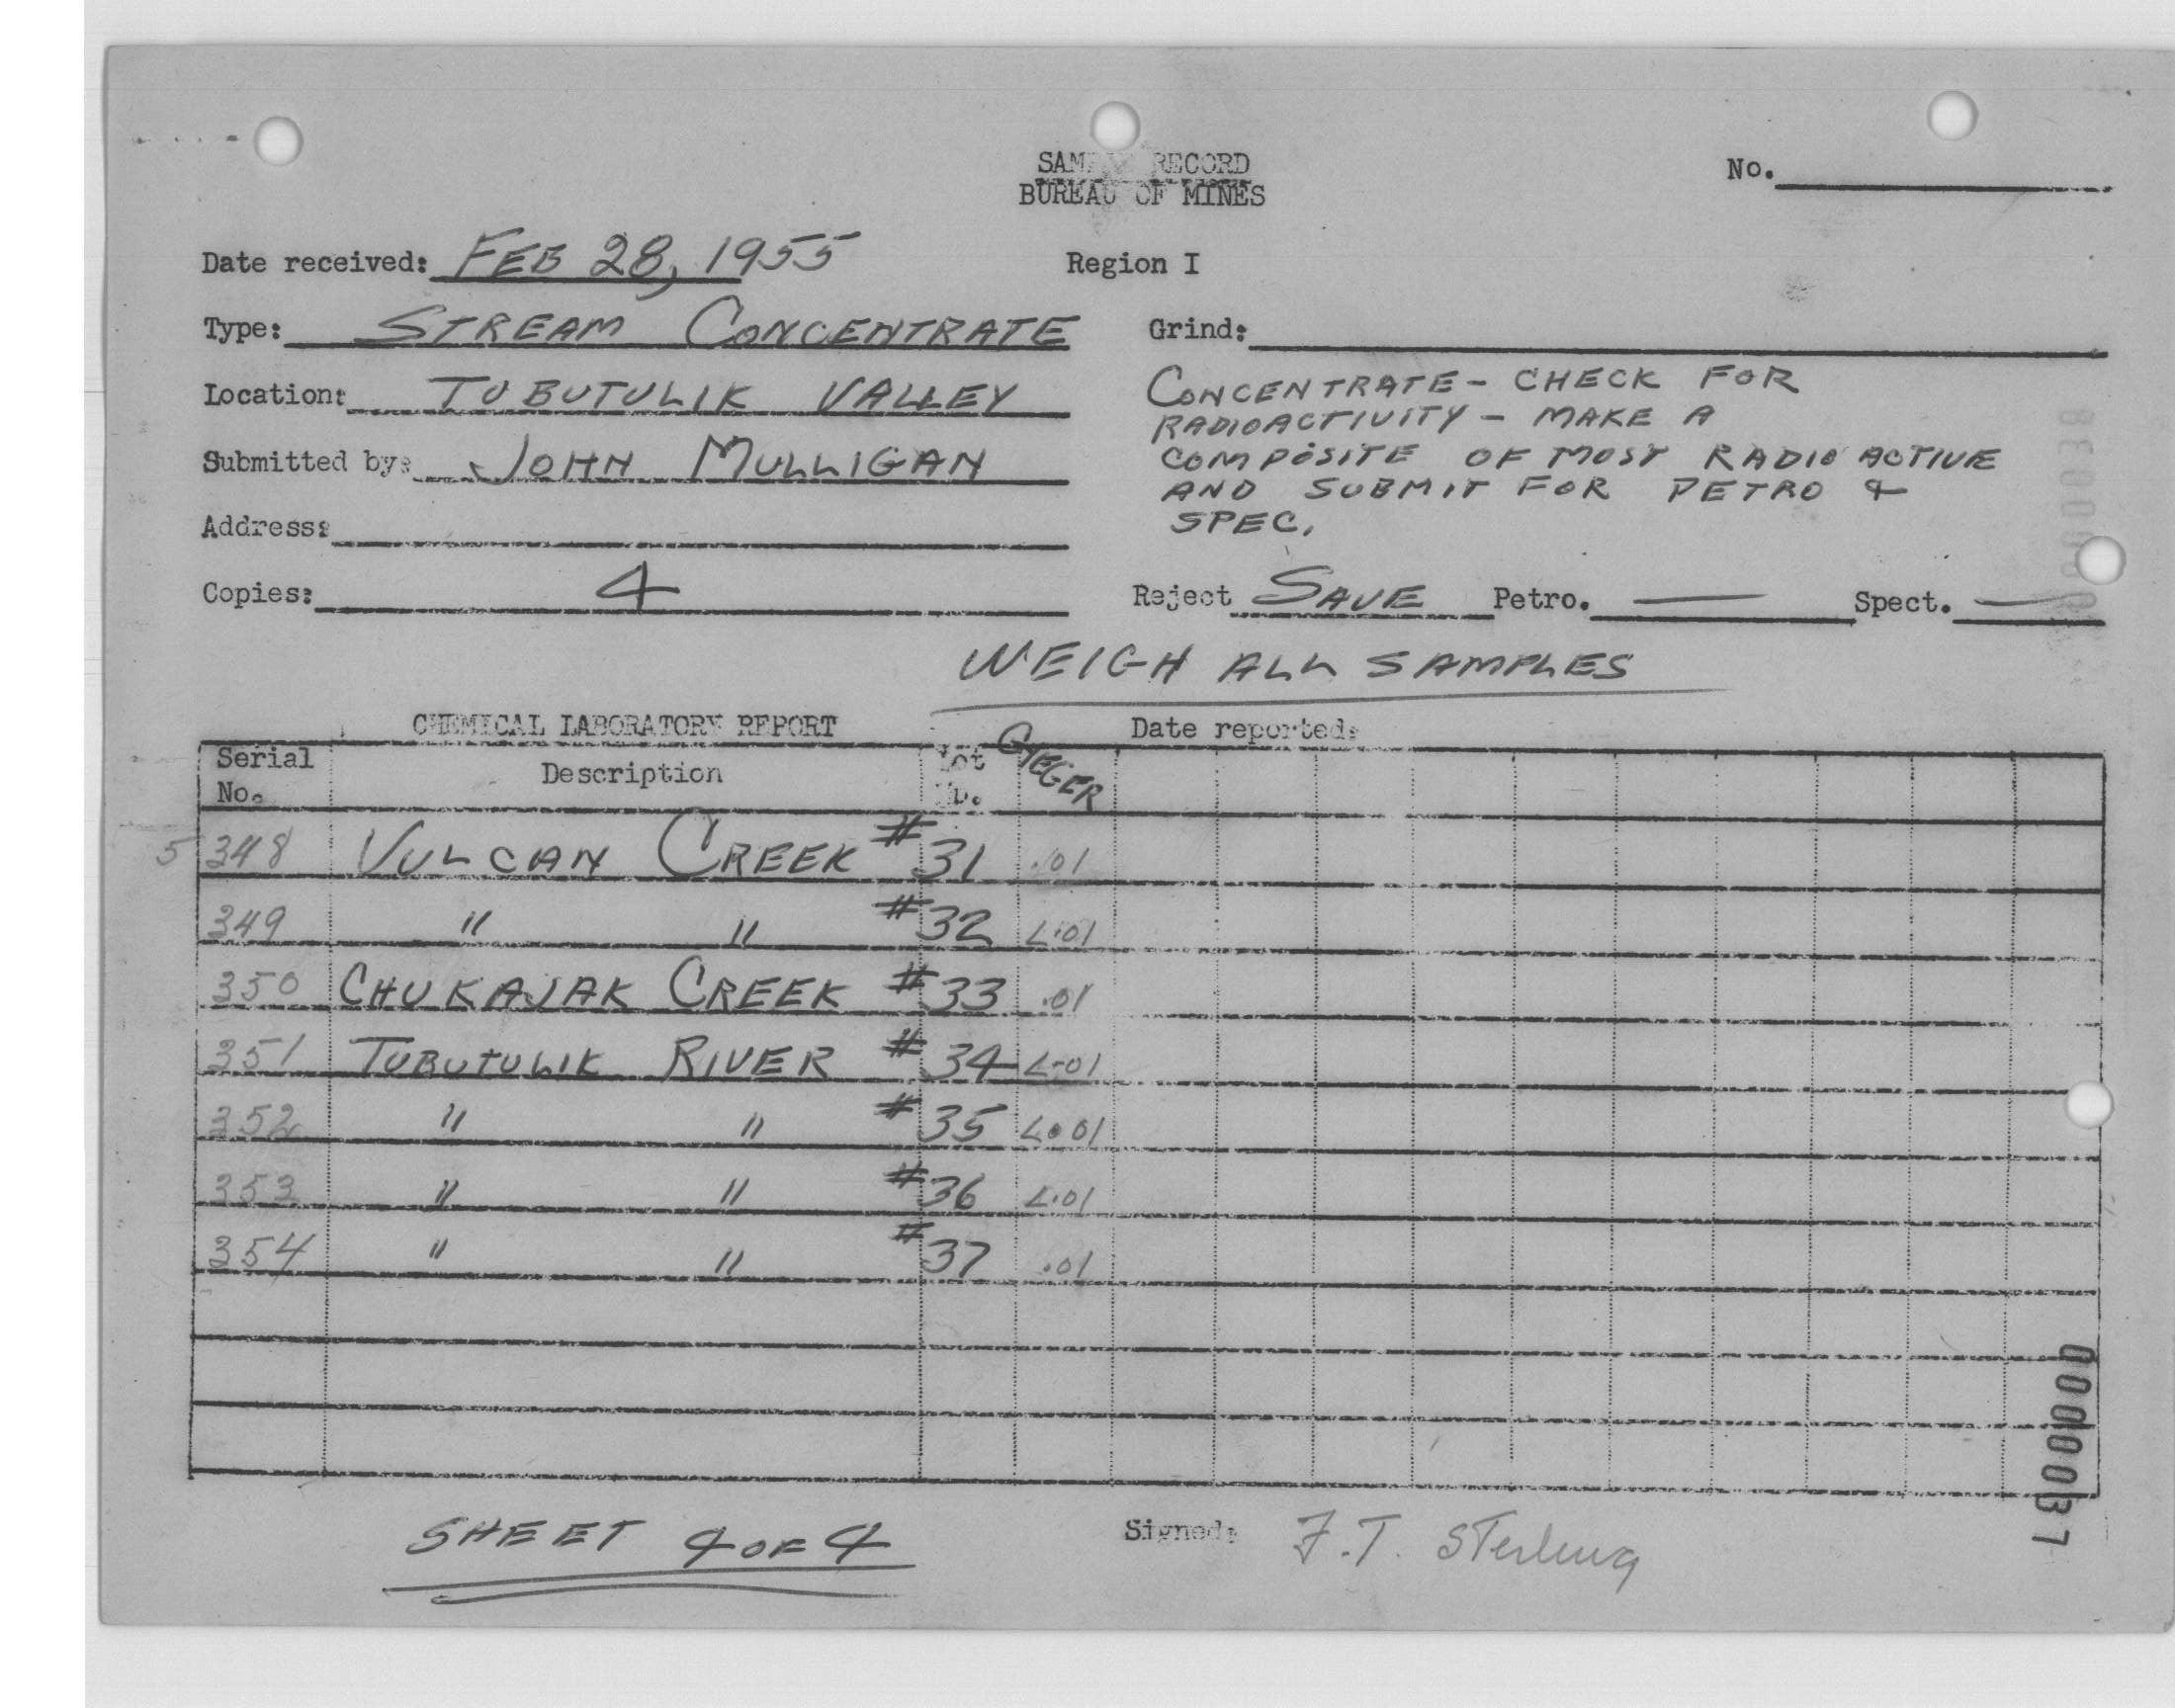 SAMPLE RECORD
BUREAU OF MINES
No.
Date received: FEB 28, 1955
Region I
Type: STREAM CONCENTRATE
Grind:
Location: TUBUTULIK VALLEY
CONCENTRATE - CHECK FOR
RADIOACTIVITY - MAKE A
Submitted by: JOHN MULLIGAN
COMPOSITE OF MOST RADIO ACTIVE
AND SUBMIT FOR PETRO &
SPEC.
Address:
Copies: 4
Reject SAVE Petro. — Spect. —
WEIGH ALL SAMPLES
CHEMICAL LABORATORY REPORT
Date reported:
Serial No. Description Lot No. GIEGER
5 348 VULCAN CREEK # 31 .01
349 " " # 32 <.01
350 CHUKAJAK CREEK # 33 .01
351 TUBUTULIK RIVER # 34 <.01
352 " " # 35 <.01
353 " " # 36 <.01
354 " " # 37 .01
SHEET 4 OF 4
Signed: F.T. Sterling
0000037